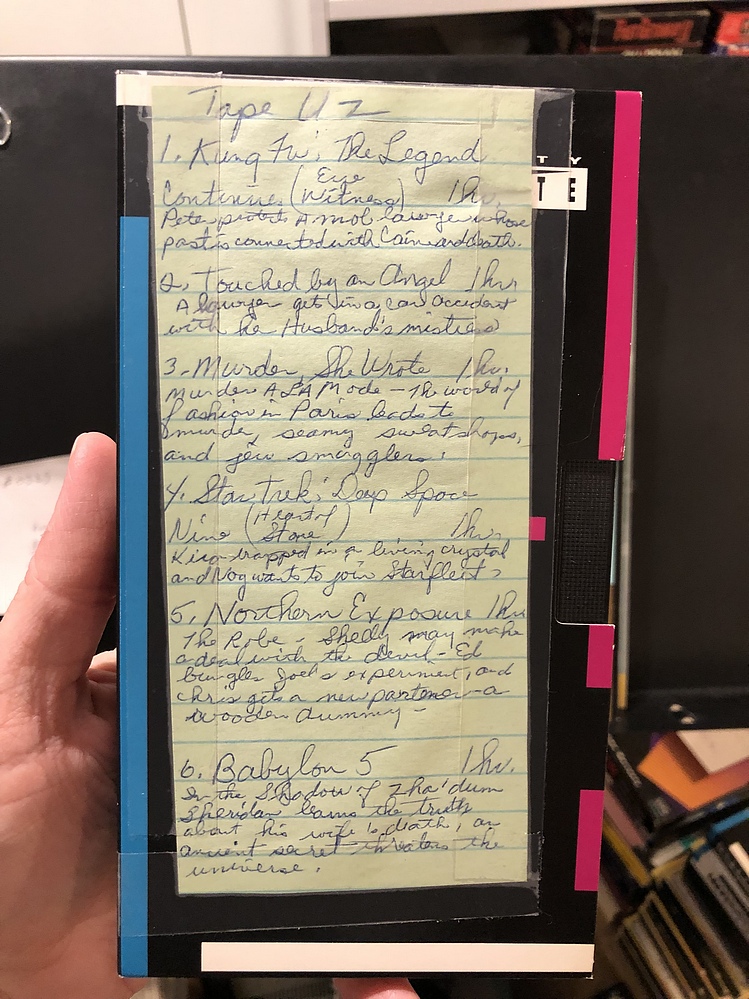 Tape U2
1. Kung Fu: The Legend
Continues (Eye Witness) 1 hr.
Peter protects A mob lawyer whose
past is connected with Caine and death.
2. Touched by an Angel 1 hr.
A lawyer gets in a car accident
with her Husband's mistress
3. Murder, She Wrote 1 hr.
Murder A LA Mode - The world of
fashion in Paris leads to
murder, seamy sweatshops,
and jew smugglers.
4. Star Trek: Deep Space
Nine (Heart of Stone) 1 hr.
Kira trapped in a living crystal
and Nog wants to join Starfleet.
5. Northern Exposure 1 hr.
The Robe - Shelly may make
a deal with the devil - Ed
bungles Joel's experiment, and
Chris gets a new partener - a
wooden dummy -
6. Babylon 5 1 hr.
In the Shadow of Zha'dum
Sheridan learns the truth
about his wife's death, an
ancient secret threatens the
universe.
TY
TE